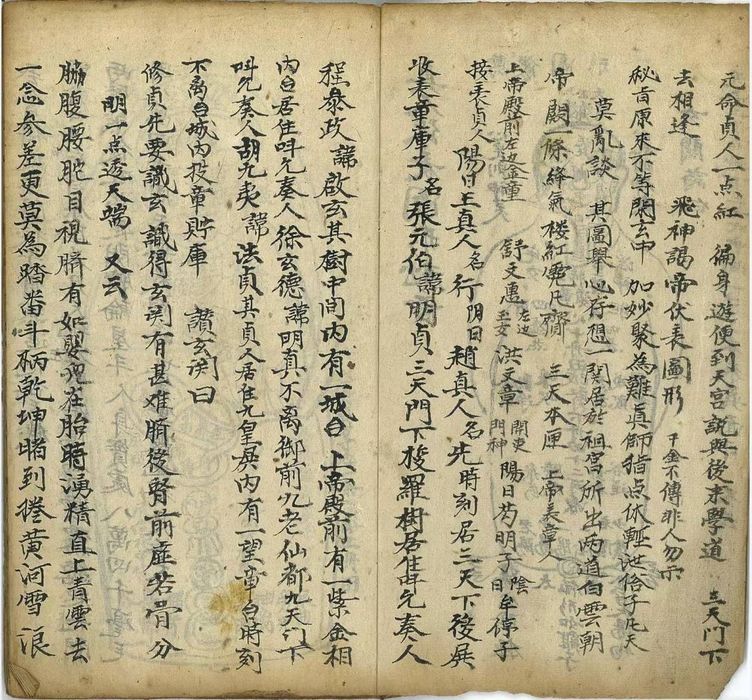 元命貞人一点紅　徧身遊便到天宮説與後末學道　三天門下
去相逢　飛神謁帝伏表圖形　千金不傳非人勿示
秘旨原來不等閑玄中　加妙聚為難真師指点伏輕泄俗子凡夫
莫亂談　其圖舉心存想一関居於祖宮所出兩道白雲朝
帝闕一條絳氣楼紅霓凡齋　三天本匣　上帝美章人
上帝殿前左边金童　舒文惠左边玉女　洪文章関東門神　陽日芍明子陰日牟停子
接表貞人　陽日王真人名行　阴日趙真人名先時刻居三天下後展
收表章庫子名張元伯諱明貞三天門下梭羅樹居住叫允奏人
程泰政諱啟玄其樹中間内有一城台上帝殿前有一紫金相
内台居住叫允奏人徐玄德諱明真不离御前九老仙都九天門下
叫允奏人胡允夷諱法貞其貞人居住九皇房内有一望章台時刻
不离台城内投章貯庫　讃玄関曰
修貞先要識玄識得玄関有甚难臍後腎前虚若骨分
明一点透天端　又云
脇腹腰駝目視臍有如嬰児在胎時湧精直上青雲去
一念参差更莫為踏畨斗柄乾坤睹到捲黄河雪浪